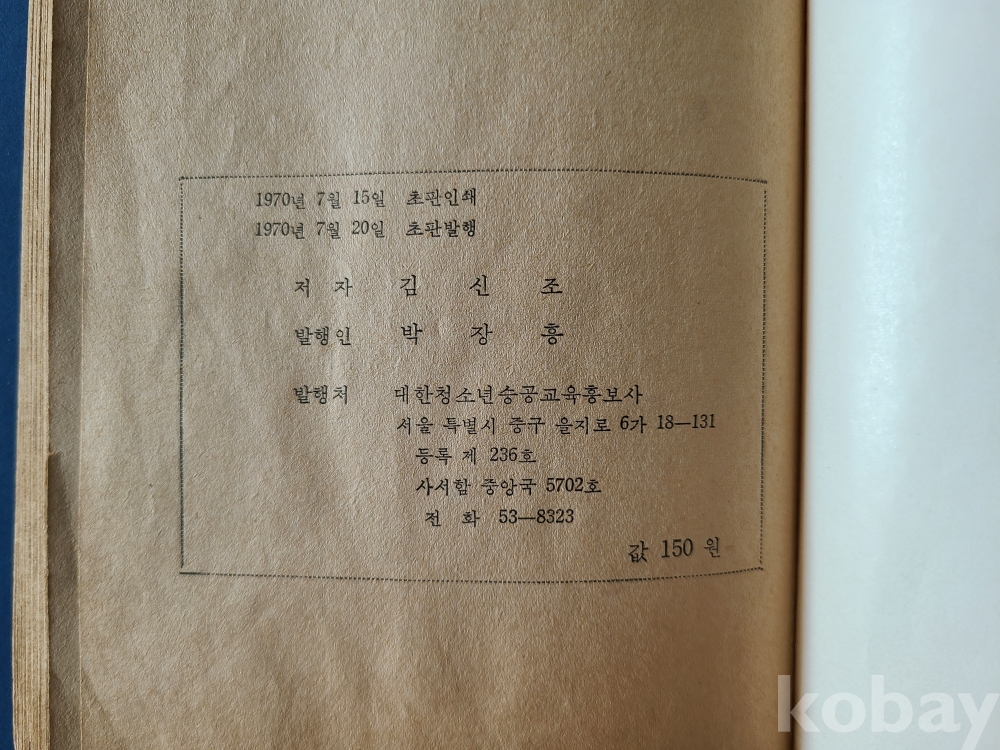 1970년 7월 15일 초판인쇄
1970년 7월 20일 초판발행
저 자 김 신 조
발행인 박 장 흥
발행처 대한청소년승공교육홍보사
서울 특별시 중구 을지로 6가 18—131
등록 제 236호
사서함 중앙국 5702호
전 화 53—8323
값 150 원
kobay